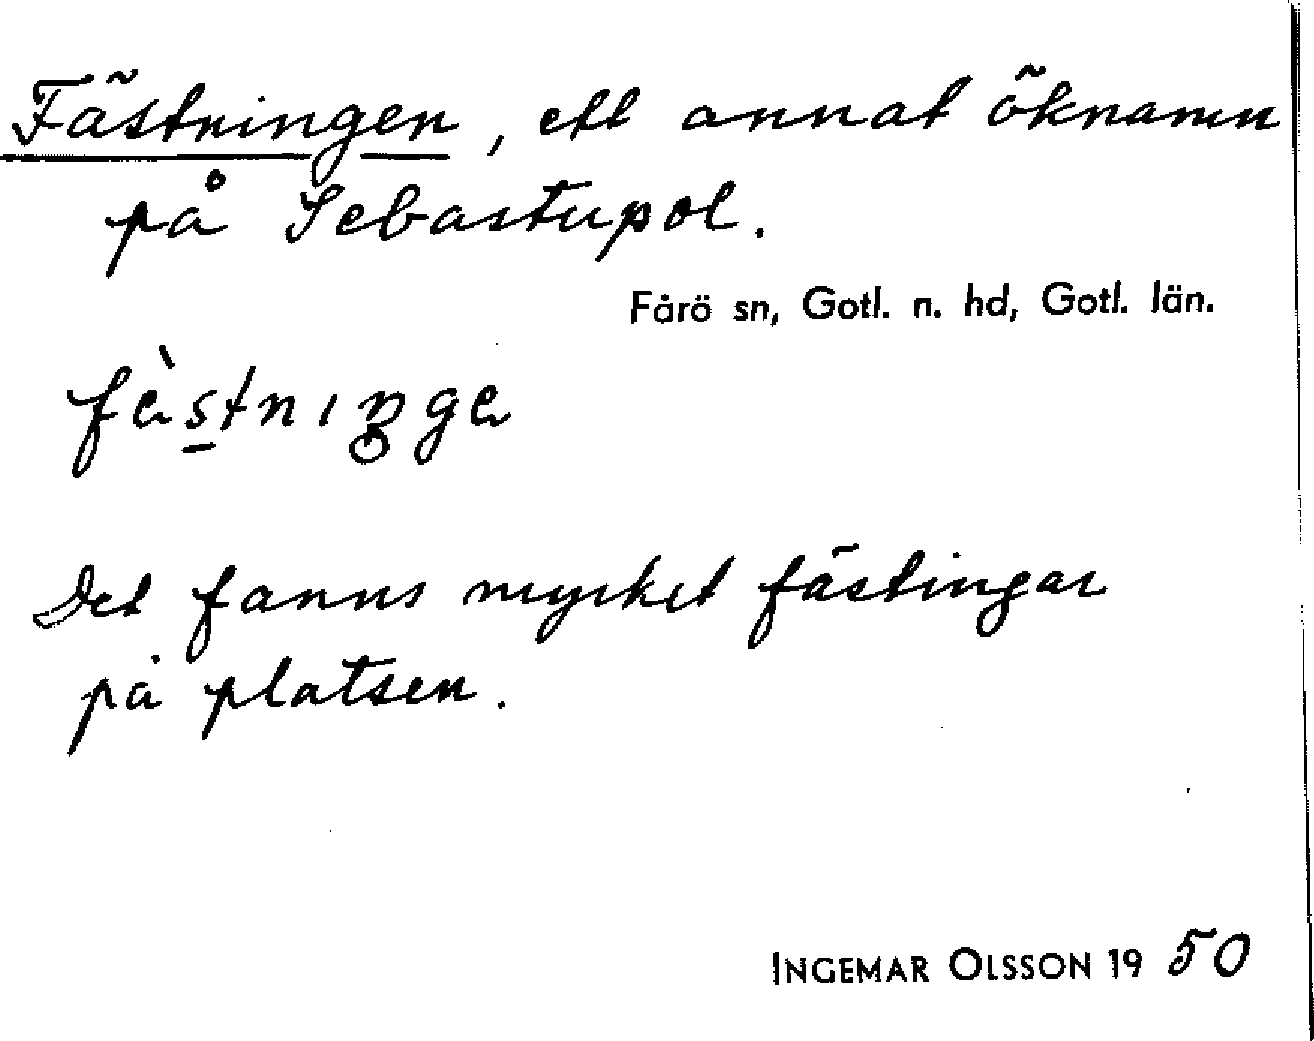 Fästningen, ett annat öknamn
på Sebastupol.
Fårö sn, Gotl. n. hd, Gotl. län.
Det fanns mycket fästingar
på platsen.
INGEMAR OLSSON 1950